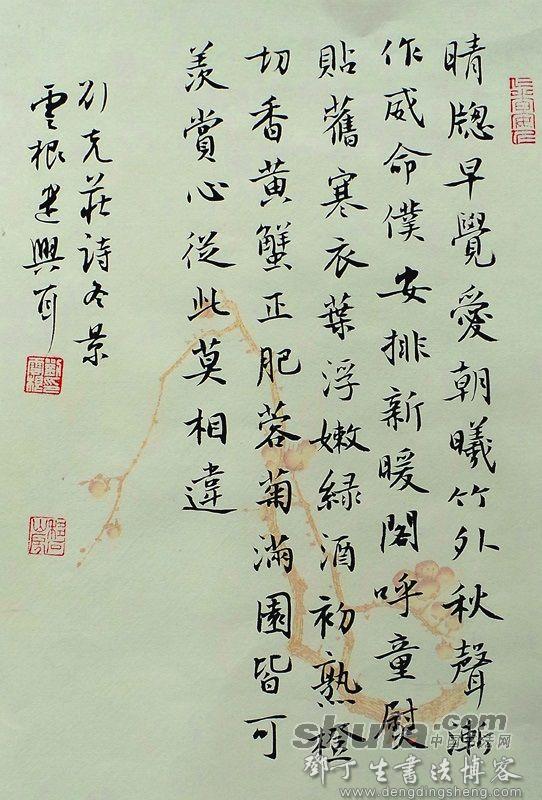 晴牕早覺愛朝曦竹外秋聲漸
作威命僕安排新暖閣呼童熨
貼舊寒衣葉浮嫩綠酒初熟橙
切香黄蟹正肥蓉菊滿園皆可
羡賞心從此莫相違
刘克莊詩冬景
雲根遣興耳
shufa.com
中国书法网
鄧丁生書法博客
www.dengdingsheng.com